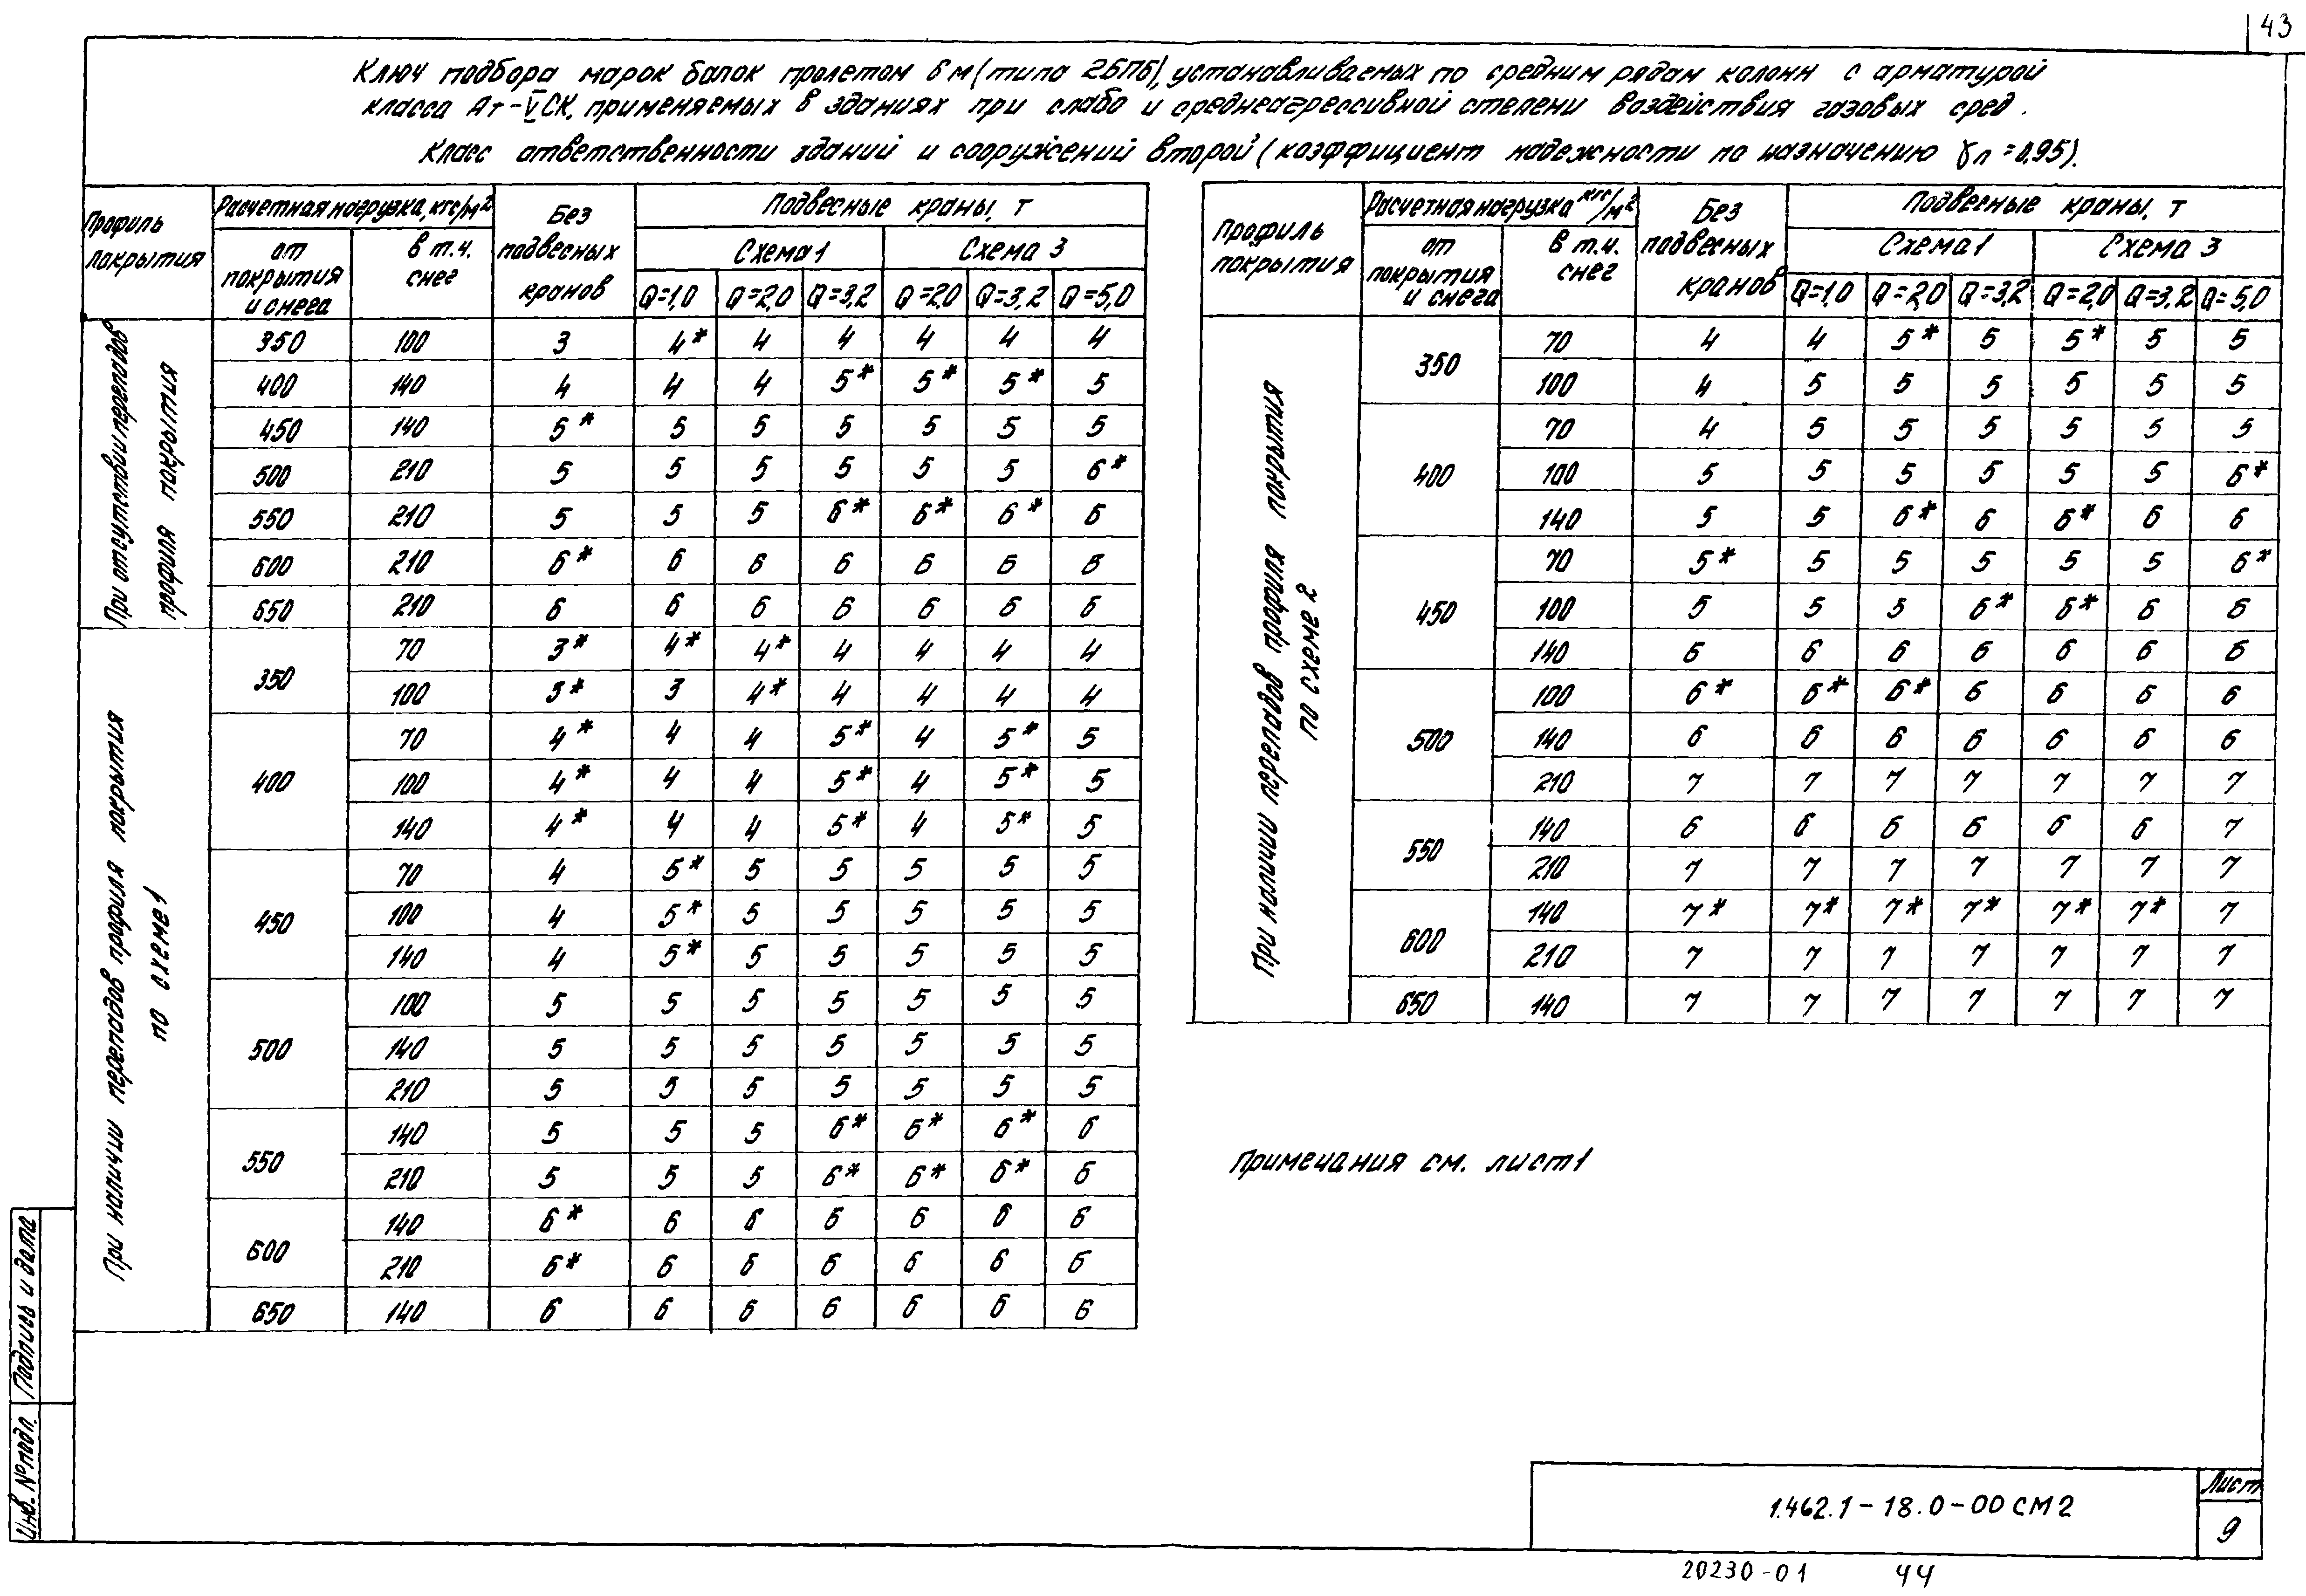 43
Ключ подбора марок балок пролетом 6 м (типа 2БП6), устанавливаемых по средним рядам колонн с арматурой
класса Ат-VСК, применяемых в зданиях при слабо и среднеагрессивной степени воздействия газовых сред.
Класс ответственности зданий и сооружений второй (коэффициент надежности по назначению γп = 0,95).
Профиль покрытия | Расчетная нагрузка, кгс/м² | Без подвесных кранов | Подвесные краны, т
от покрытия и снега | в т.ч. снег | Схема 1 | Схема 3
Q=1,0 | Q=2,0 | Q=3,2 | Q=2,0 | Q=3,2 | Q=5,0
При отсутствии перепадов профиля покрытия
350 | 100 | 3 | 4* | 4 | 4 | 4 | 4 | 4
400 | 140 | 4 | 4 | 4 | 5* | 5* | 5* | 5
450 | 140 | 5* | 5 | 5 | 5 | 5 | 5 | 5
500 | 210 | 5 | 5 | 5 | 5 | 5 | 5 | 6*
550 | 210 | 5 | 5 | 5 | 6* | 6* | 6* | 6
600 | 210 | 6* | 6 | 6 | 6 | 6 | 6 | 6
650 | 210 | 6 | 6 | 6 | 6 | 6 | 6 | 6
При наличии перепадов профиля покрытия по схеме 1
350 | 70 | 3* | 4* | 4* | 4 | 4 | 4 | 4
100 | 3* | 3 | 4* | 4 | 4 | 4 | 4
400 | 70 | 4* | 4 | 4 | 5* | 4 | 5* | 5
100 | 4* | 4 | 4 | 5* | 4 | 5* | 5
140 | 4* | 4 | 4 | 5* | 4 | 5* | 5
450 | 70 | 4 | 5* | 5 | 5 | 5 | 5 | 5
100 | 4 | 5* | 5 | 5 | 5 | 5 | 5
140 | 4 | 5* | 5 | 5 | 5 | 5 | 5
500 | 100 | 5 | 5 | 5 | 5 | 5 | 5 | 5
140 | 5 | 5 | 5 | 5 | 5 | 5 | 5
210 | 5 | 5 | 5 | 5 | 5 | 5 | 5
550 | 140 | 5 | 5 | 5 | 6* | 6* | 6* | 6
210 | 5 | 5 | 5 | 6* | 6* | 6* | 6
600 | 140 | 6* | 6 | 6 | 6 | 6 | 6 | 6
210 | 6* | 6 | 6 | 6 | 6 | 6 | 6
650 | 140 | 6 | 6 | 6 | 6 | 6 | 6 | 6
Профиль покрытия | Расчетная нагрузка кгс/м² | Без подвесных кранов | Подвесные краны, т
от покрытия и снега | в т.ч. снег | Схема 1 | Схема 3
Q=1,0 | Q=2,0 | Q=3,2 | Q=2,0 | Q=3,2 | Q=5,0
При наличии перепадов профиля покрытия по схеме 2
350 | 70 | 4 | 4 | 5* | 5 | 5* | 5 | 5
100 | 4 | 5 | 5 | 5 | 5 | 5 | 5
400 | 70 | 4 | 5 | 5 | 5 | 5 | 5 | 5
100 | 5 | 5 | 5 | 5 | 5 | 5 | 6*
140 | 5 | 5 | 6* | 6 | 6* | 6 | 6
450 | 70 | 5* | 5 | 5 | 5 | 5 | 5 | 6*
100 | 5 | 5 | 5 | 6* | 6* | 6 | 6
140 | 6 | 6 | 6 | 6 | 6 | 6 | 6
500 | 100 | 6* | 6* | 6* | 6 | 6 | 6 | 6
140 | 6 | 6 | 6 | 6 | 6 | 6 | 6
210 | 7 | 7 | 7 | 7 | 7 | 7 | 7
550 | 140 | 6 | 6 | 6 | 6 | 6 | 6 | 7
210 | 7 | 7 | 7 | 7 | 7 | 7 | 7
600 | 140 | 7* | 7* | 7* | 7* | 7* | 7* | 7
210 | 7 | 7 | 7 | 7 | 7 | 7 | 7
650 | 140 | 7 | 7 | 7 | 7 | 7 | 7 | 7
Примечания см. лист 1
Инв. № подл. | Подпись и дата
1.462.1-18.0-00 СМ2
Лист
9
20230-01 44